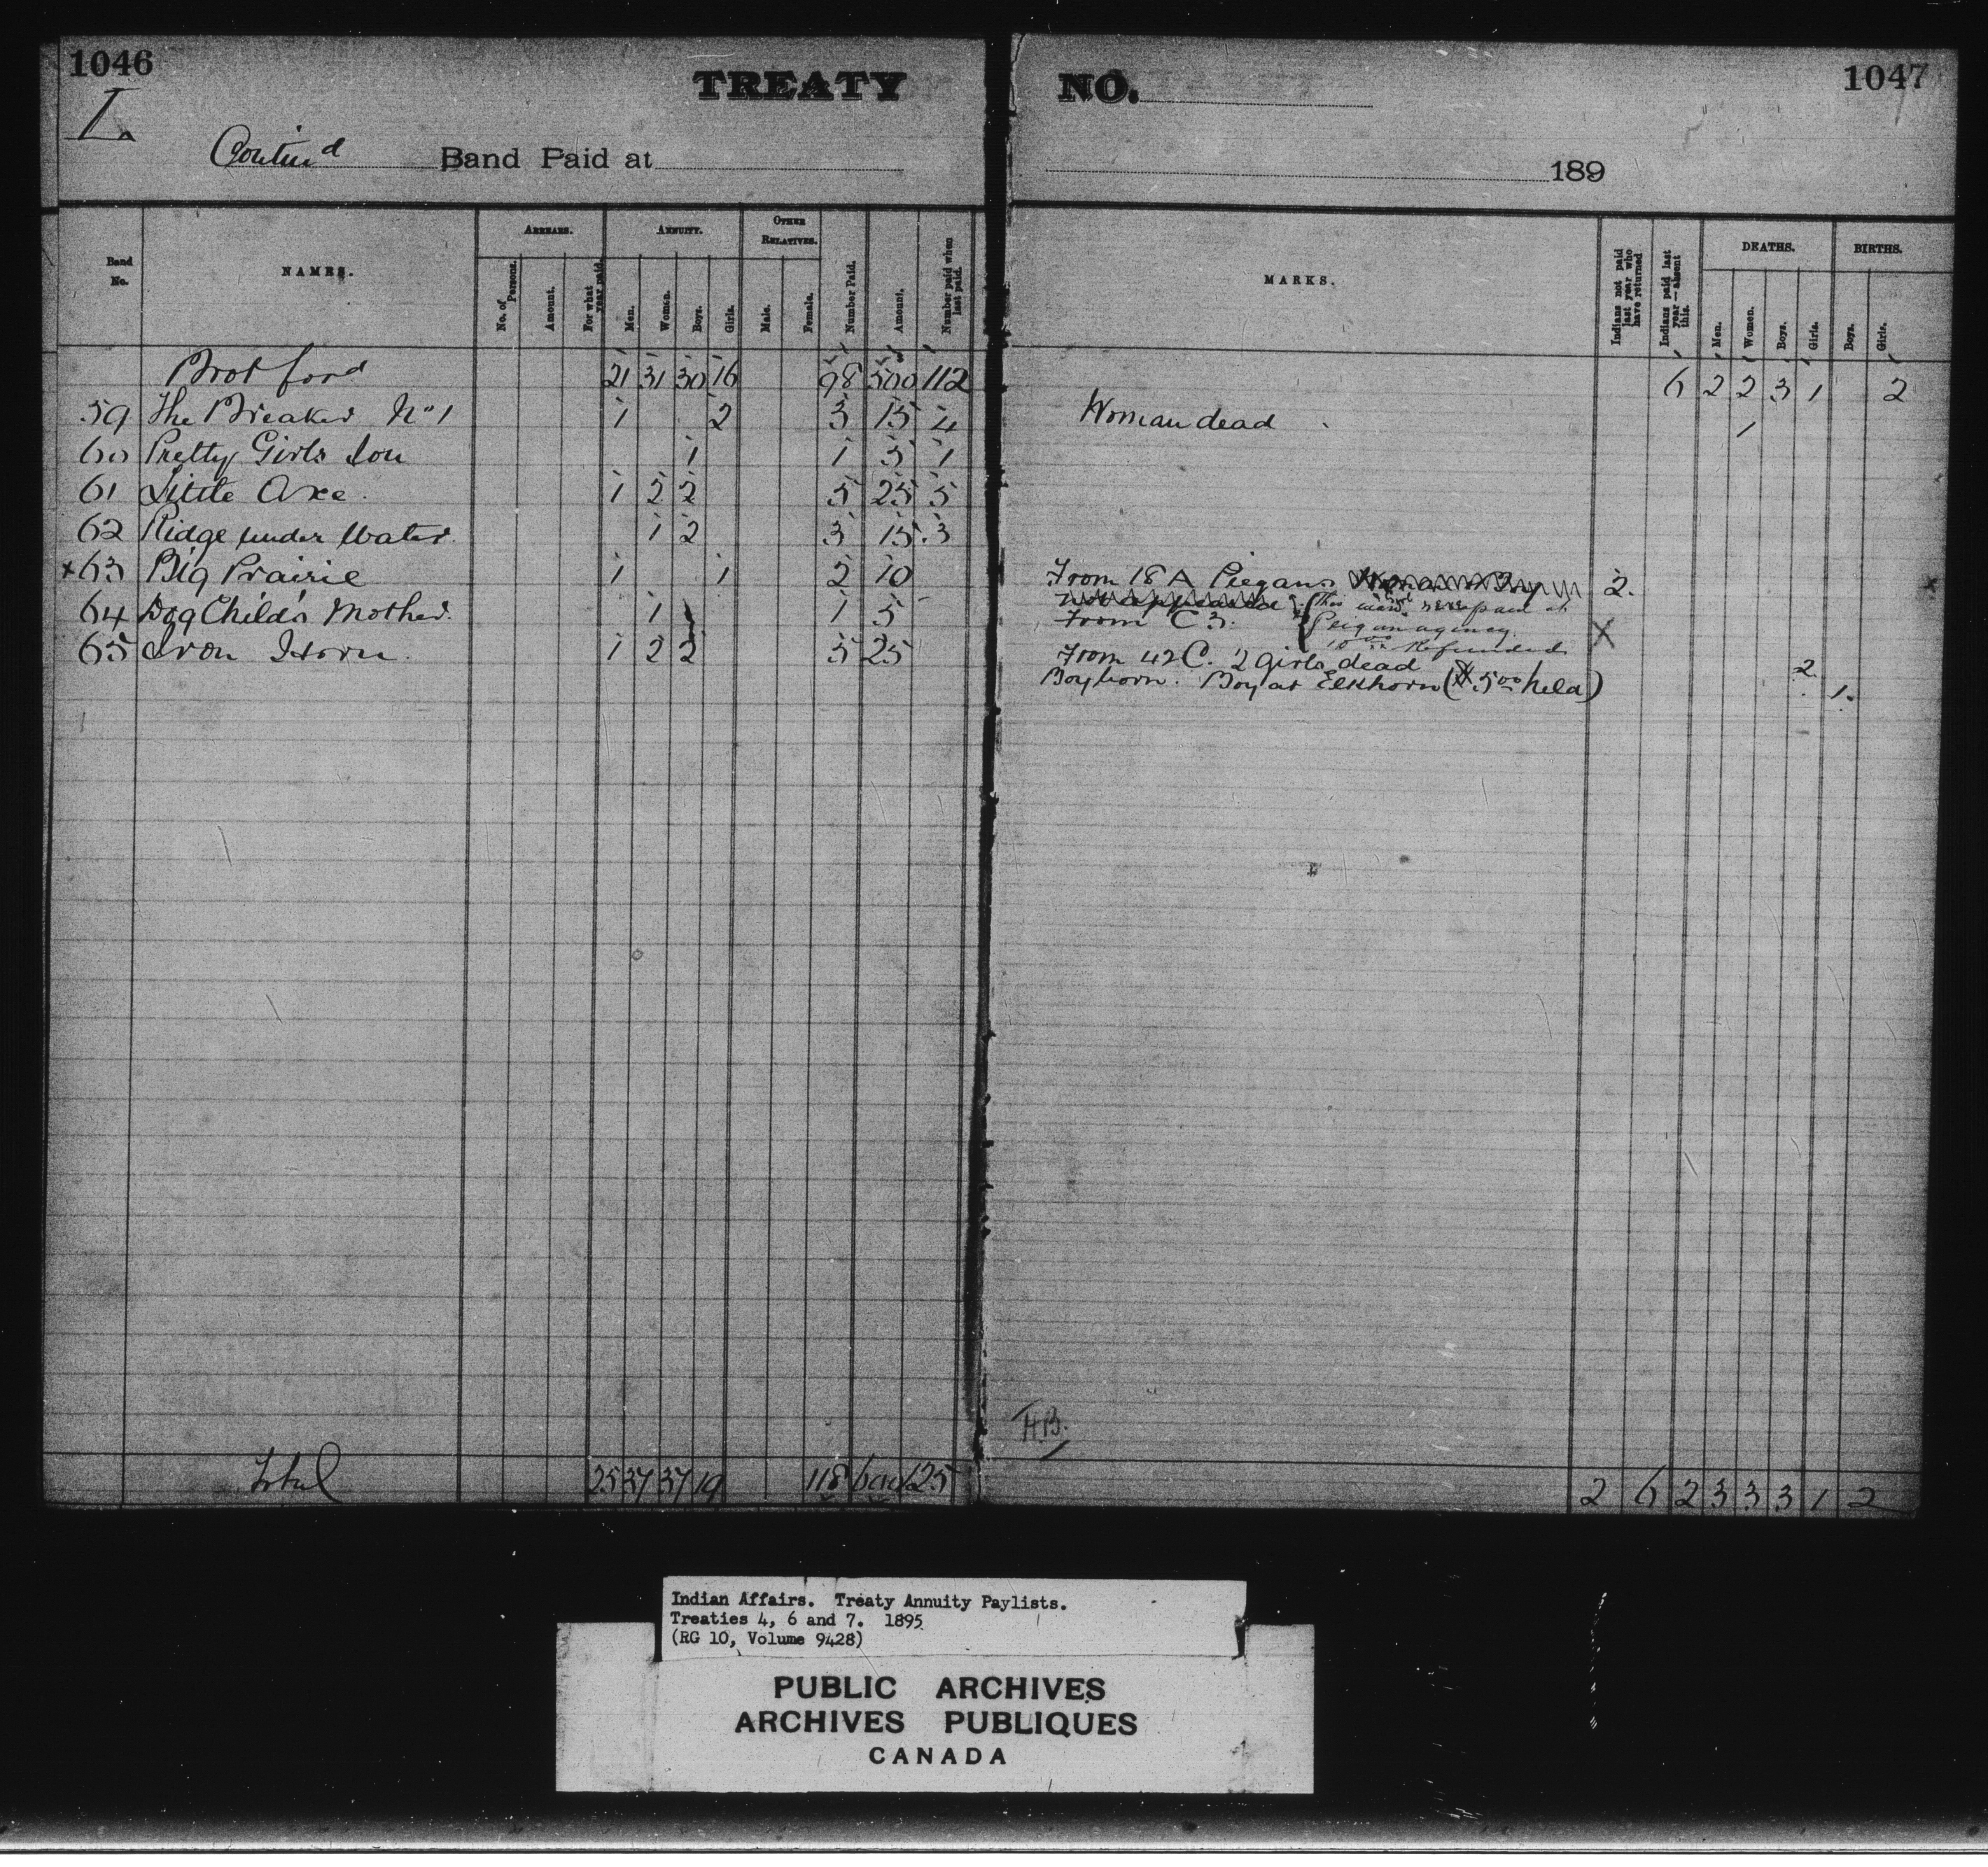 1046
TREATY
NO.
1047
I.
Contin^d Band Paid at
189
Band No.
NAMES.
ARREARS.
No. of Persons.
Amount.
For what year paid.
ANNUITY.
Men.
Women.
Boys.
Girls.
OTHER RELATIVES.
Male.
Female.
Number Paid.
Amount.
Number paid when last paid.
MARKS.
Indians not paid last year who have returned
Indians paid last year—absent this.
DEATHS.
Men.
Women.
Boys.
Girls.
BIRTHS.
Boys.
Girls.
Brot ford 21 31 30 16 98 500 112 6 2 2 3 1 2
59 The Breaker No 1 1 2 3 15 4 Woman dead 1
60 Pretty Girls Son 1 1 5 1
61 Little Axe. 1 2 2 5 25 5
62 Ridge under Water. 1 2 3 15. 3
x 63 Big Prairie 1 1 2 10 From 18 A Piegans 2.
64 Dog Child's Mother. 1 1 5 From C 3. X
paid at
Peigan agency.
10 00 Refunded
65 Iron Horn. 1 2 2 5 25 From 42 C. 2 girls dead 2.
Boy born. Boy at Elkhorn ($5 00 held) 1.
H.B.
Total 25 37 37 19 118 600 125 2 6 2 3 3 3 1 2
Indian Affairs. Treaty Annuity Paylists.
Treaties 4, 6 and 7. 1895
(RG 10, Volume 9428)
PUBLIC ARCHIVES
ARCHIVES PUBLIQUES
CANADA